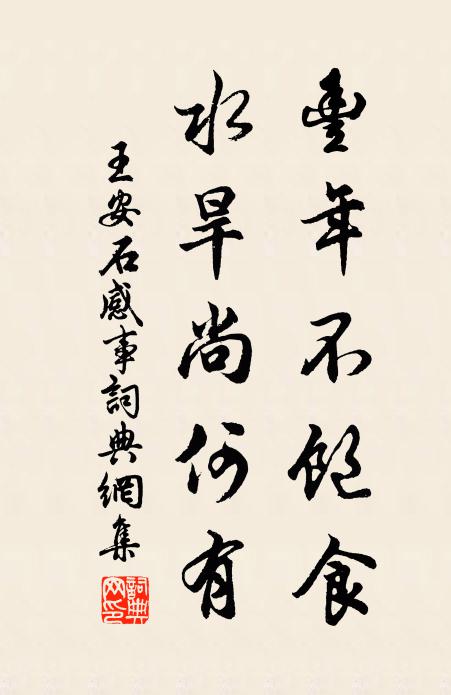 豐年不飽食
水旱尚何有
王安石感事詞典網集
詞典網印